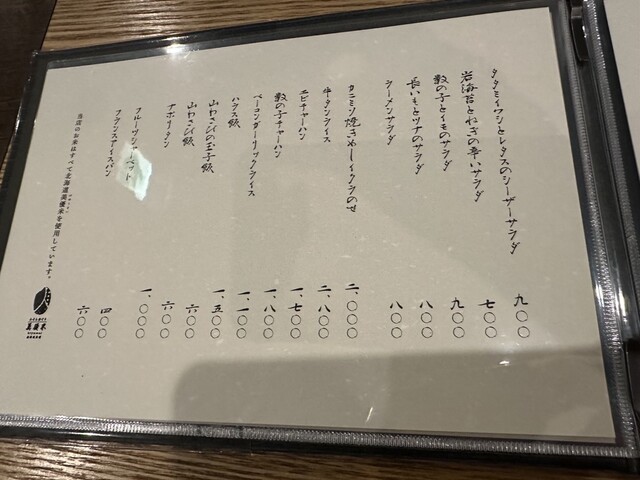 タタミイワシとレタスのシーザーサラダ 九〇〇
岩海苔とねぎの辛いサラダ 七〇〇
数の子とイモのサラダ 九〇〇
長いもとツナのサラダ 八〇〇
ラーメンサラダ 八〇〇
カニミソ焼きめしイクラのせ 二、〇〇〇
牛タンライス 二、八〇〇
エビチャーハン 一、七〇〇
数の子チャーハン 一、八〇〇
ベーコンガーリックライス 一、一〇〇
ハラス飯 一、五〇〇
山わさびの玉子飯 六〇〇
山わさび飯 六〇〇
ナポリタン 一、〇〇〇
フルーツシャーベット 四〇〇
フランスアイスパン 六〇〇
当店のお米はすべて北海道美優米を使用しています。
美優米